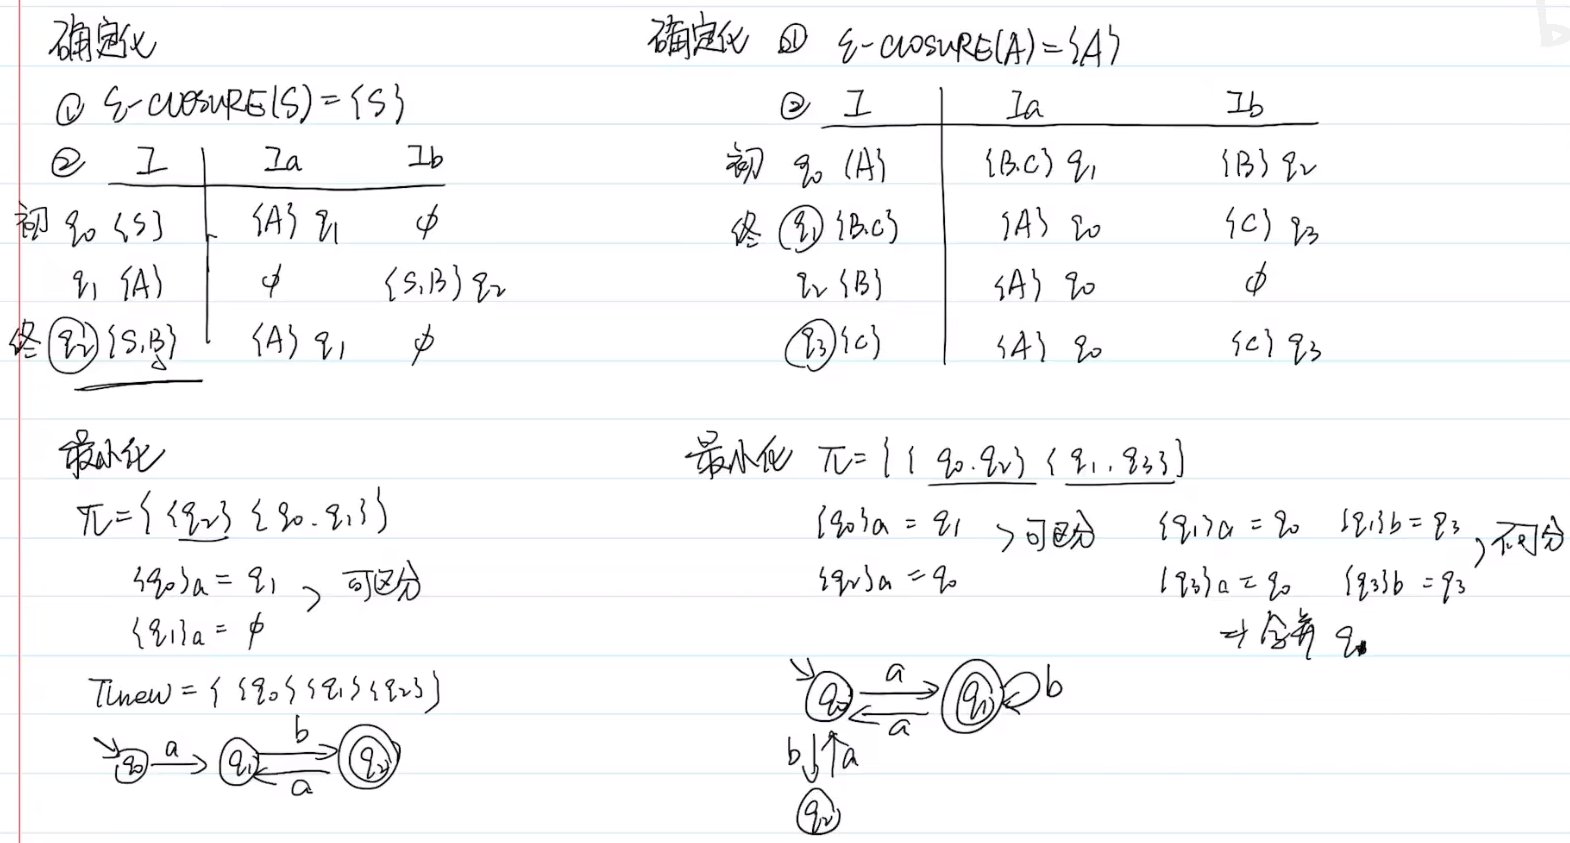 确定化
① ε-CLOSURE(S)={S}
② I Ia Ib
初 q0 {S} {A} q1 φ
q1 {A} φ {S,B} q2
终 q2 {S,B} {A} q1 φ
最小化
π={ {q2} {q0.q1} }
{q0}a = q1 > 可区分
{q1}a = φ
πnew = { {q0} {q1} {q2} }
q0 a q1 b a q2
确定化 ① ε-CLOSURE(A)={A}
② I Ia Ib
初 q0 {A} {B.C} q1 {B} q2
终 q1 {B.C} {A} q0 {C} q3
q2 {B} {A} q0 φ
q3 {C} {A} q0 {C} q3
最小化 π={ { q0.q2} { q1.q3} }
{q0}a = q1 > 可区分 {q1}a = q0 {q1}b = q3 > 不可分
{q2}a = q0 {q3}a = q0 {q3}b = q3
⇒ 合并
q0 a a q1 b
b a
q2